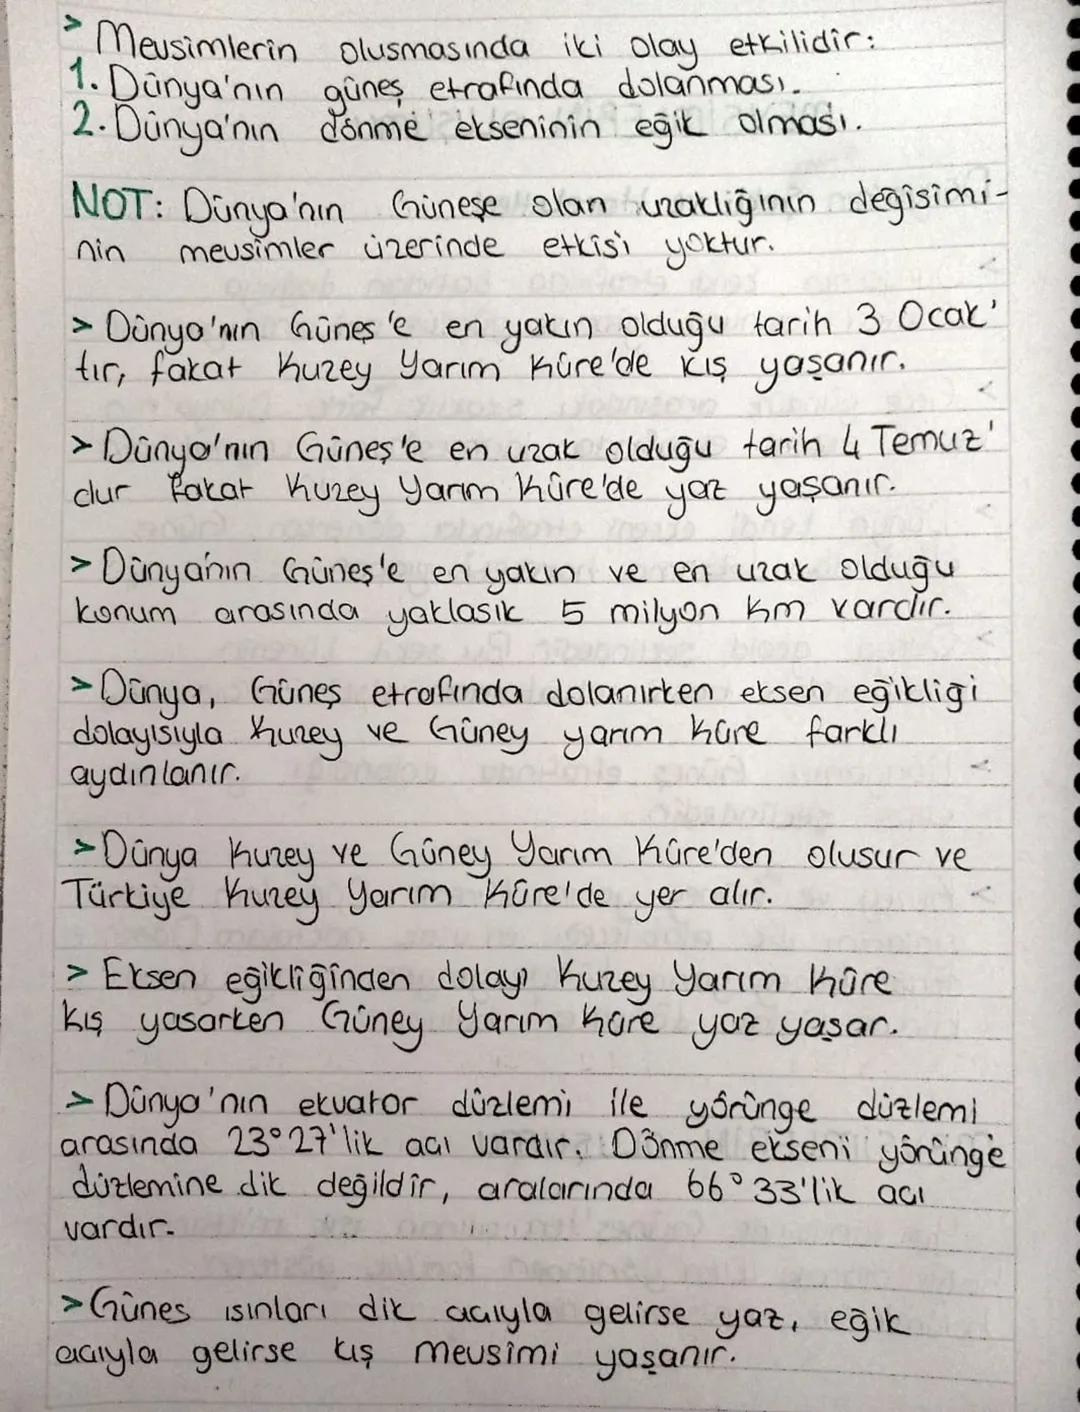 > Mevsimlerin olusmasında iki olay etkilidir:
1. Dünya'nın güneş etrafında dolanması.
2. Dünya'nın dönme ekseninin eğik olması.
NOT: Dünya'nın Güneşe olan uzaklığının değisimi-
nin mevsimler üzerinde etkisi yoktur.
> Dünya'nın Güneş'e en yakın olduğu tarih 3 Ocak'
tır, fakat Kuzey Yarım Küre'de kış yaşanır.
> Dünya'nın Güneş'e en uzak olduğu tarih 4 Temuz'
dur fakat Kuzey Yarım Küre'de yaz yaşanır.
> Dünya'nın Güneş'e en yakın ve en uzak olduğu
konum arasında yaklasık 5 milyon km vardır.
> Dünya, Güneş etrafında dolanırken eksen eğikliği
dolayısıyla Kuzey ve Güney yarım küre farklı
aydınlanır.
> Dünya Kuzey ve Güney Yarım Küre'den olusur ve
Türkiye Kuzey Yarım Küre'de yer alır.
> Eksen eğikliğinden dolayı Kuzey Yarım Küre
kış yasarken Güney Yarım Küre yaz yaşar.
> Dünya'nın ekvator düzlemi ile yörünge düzlemi
arasında 23°27'lik acı vardır. Dönme ekseni yörünge
düzlemine dik değildir, aralarında 66°33'lik acı
vardır.
> Günes ısınları dik acıyla gelirse yaz, eğik
acıyla gelirse kış mevsimi yaşanır.